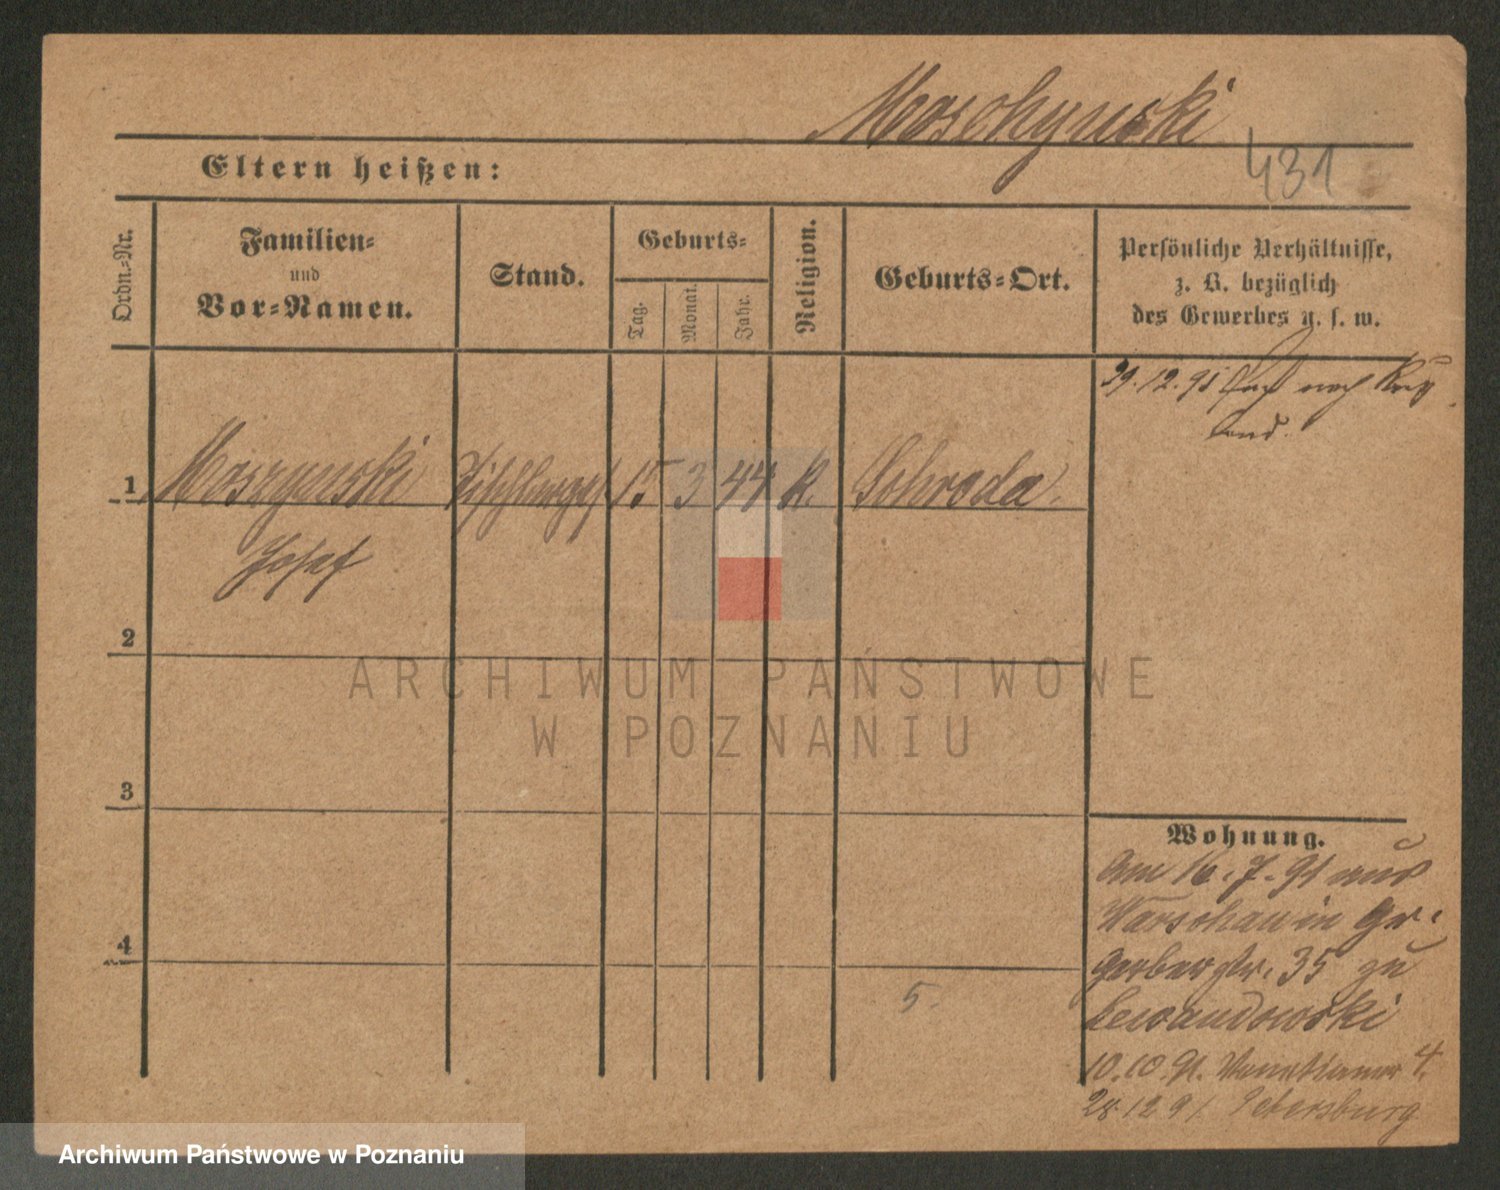 Moschynski
431
Eltern heißen:
Ordn.-Nr.
Familien-
und
Vor-Namen.
Stand.
Geburts-
Tag.
Monat.
Jahr.
Religion.
Geburts-Ort.
Persönliche Verhältnisse,
z. B. bezüglich
des Gewerbes u. s. w.
29.12.91 nach
land.
1 Moszynski 15 3 44 k. Schroda.
Josef
2
3
4
5.
Wohnung.
Am 16.7.91 aus
Warschau in Gr.
Gerberstr. 35 zu
Lewandowski
10.10.91. 4.
28.12.91 Petersburg
ARCHIWUM PAŃSTWOWE
W POZNANIU
Archiwum Państwowe w Poznaniu